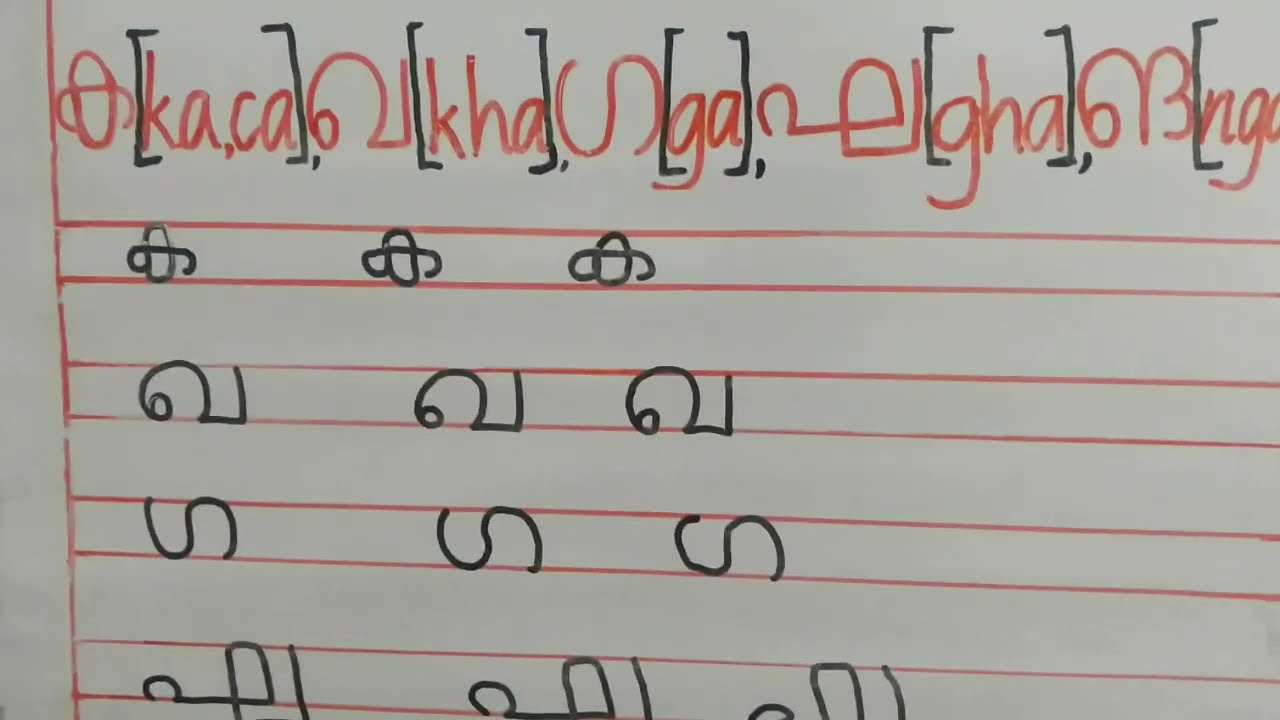 ക[ka,ca],ഖ[kha],ഗ[ga],ഘ[gha],ങ[nga
ക ക ക
ഖ ഖ ഖ
ഗ ഗ ഗ
ഘ ഘ ഘ